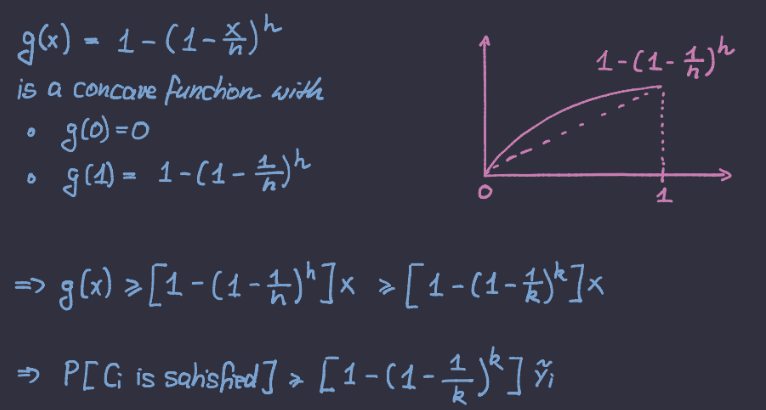 g(x) = 1 - (1 - x/h)^h
is a concave function with
• g(0) = 0
• g(1) = 1 - (1 - 1/h)^h
1 - (1 - 1/h)^h
0
1
=> g(x) ≥ [1 - (1 - 1/h)^h] x ≥ [1 - (1 - 1/k)^k] x
=> P[Ci is satisfied] ≥ [1 - (1 - 1/k)^k] ỹi